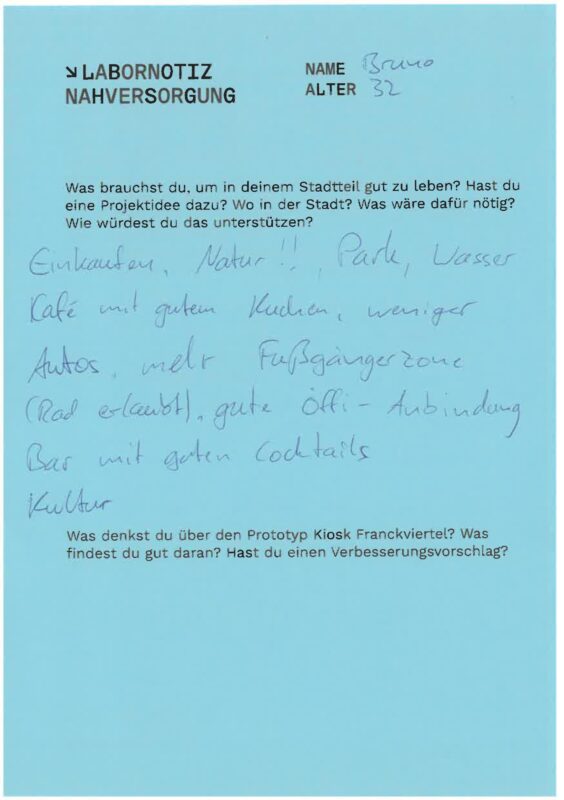 ↘ LABORNOTIZ
NAHVERSORGUNG
NAME Bruno
ALTER 32
Was brauchst du, um in deinem Stadtteil gut zu leben? Hast du
eine Projektidee dazu? Wo in der Stadt? Was wäre dafür nötig?
Wie würdest du das unterstützen?
Einkaufen, Natur!!, Park, Wasser
Kafé mit gutem Kuchen, weniger
Autos, mehr Fußgängerzone
(Rad erlaubt), gute Öffi-Anbindung
Bar mit guten Cocktails
Kultur
Was denkst du über den Prototyp Kiosk Franckviertel? Was
findest du gut daran? Hast du einen Verbesserungsvorschlag?